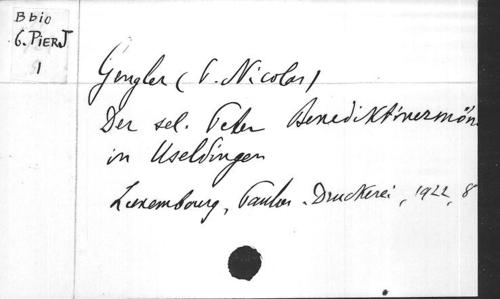 B bio
6. PIER J
1
Gengler (P. Nicolas)
Der sel. Peter Benediktinermön
in Useldingen
Luxembourg, Paulus-Druckerei, 1922, 8